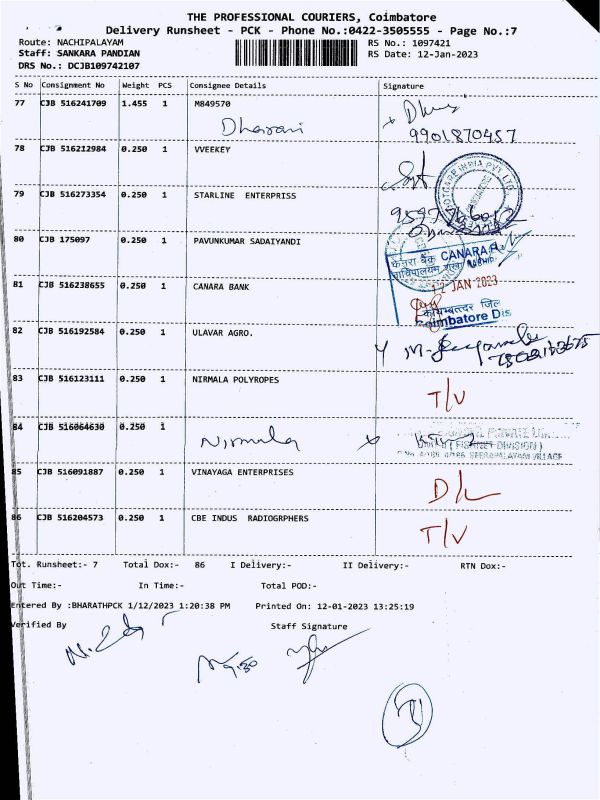 THE PROFESSIONAL COURIERS, Coimbatore
Delivery Runsheet - PCK - Phone No.:0422-3505555 - Page No.:7
Route: NACHIPALAYAM RS No.: 1097421
Staff: SANKARA PANDIAN RS Date: 12-Jan-2023
DRS No.: DCJB109742107
S No Consignment No Weight PCS Consignee Details Signature
77 CJB 516241709 1.455 1 M849570
Dharani 9901870457
78 CJB 516212984 0.250 1 VVEEKEY
79 CJB 516273354 0.250 1 STARLINE ENTERPRISS
80 CJB 175097 0.250 1 PAVUNKUMAR SADAIYANDI
केनरा बैंक CANARA
81 CJB 516238655 0.250 1 CANARA BANK
12 JAN 2023
कोयम्बत्तूर जिल
Coimbatore Dis
82 CJB 516192584 0.250 1 ULAVAR AGRO.
83 CJB 516123111 0.250 1 NIRMALA POLYROPES
T/V
84 CJB 516064630 0.250 1
Nirmala
(FISHNET DIVISION)
85 CJB 516091887 0.250 1 VINAYAGA ENTERPRISES
D/L
86 CJB 516204573 0.250 1 CBE INDUS RADIOGRPHERS
T/V
Tot. Runsheet:- 7 Total Dox:- 86 I Delivery:- II Delivery:- RTN Dox:-
Out Time:- In Time:- Total POD:-
Entered By :BHARATHPCK 1/12/2023 1:20:38 PM Printed On: 12-01-2023 13:25:19
Verified By Staff Signature